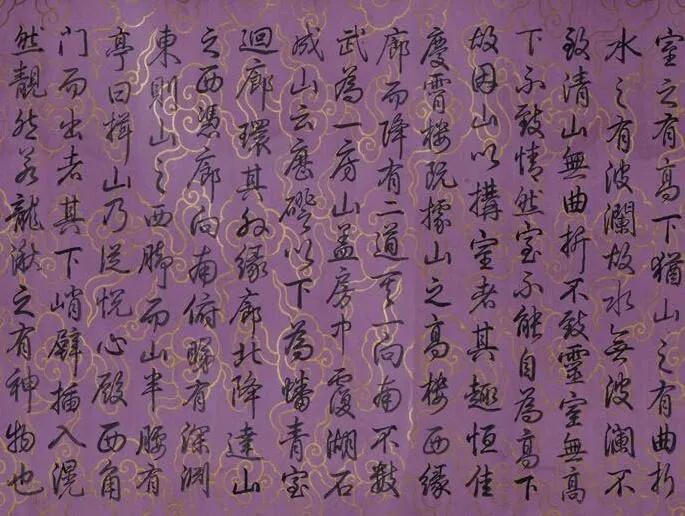 室之有高下猶山之有曲折
水之有波瀾故水無波瀾不
致清山無曲折不致靈室無高
下不致情然室不能自為高下
故因山以搆室者其趣恒佳
慶霄樓既據山之高樓西緣
廊而降有二道其一向南不數
武為一房山蓋房中覆湖石
成山云歷磴以下為蟠青室
迴廊環其外緣廊北降達山
之西憑廊向南俯睇有深淵
東則山之西脚而山半腰有
亭曰揖山乃從悦心殿西角
門而出者其下峭壁插入滉
然靚然若龍湫之有神物也